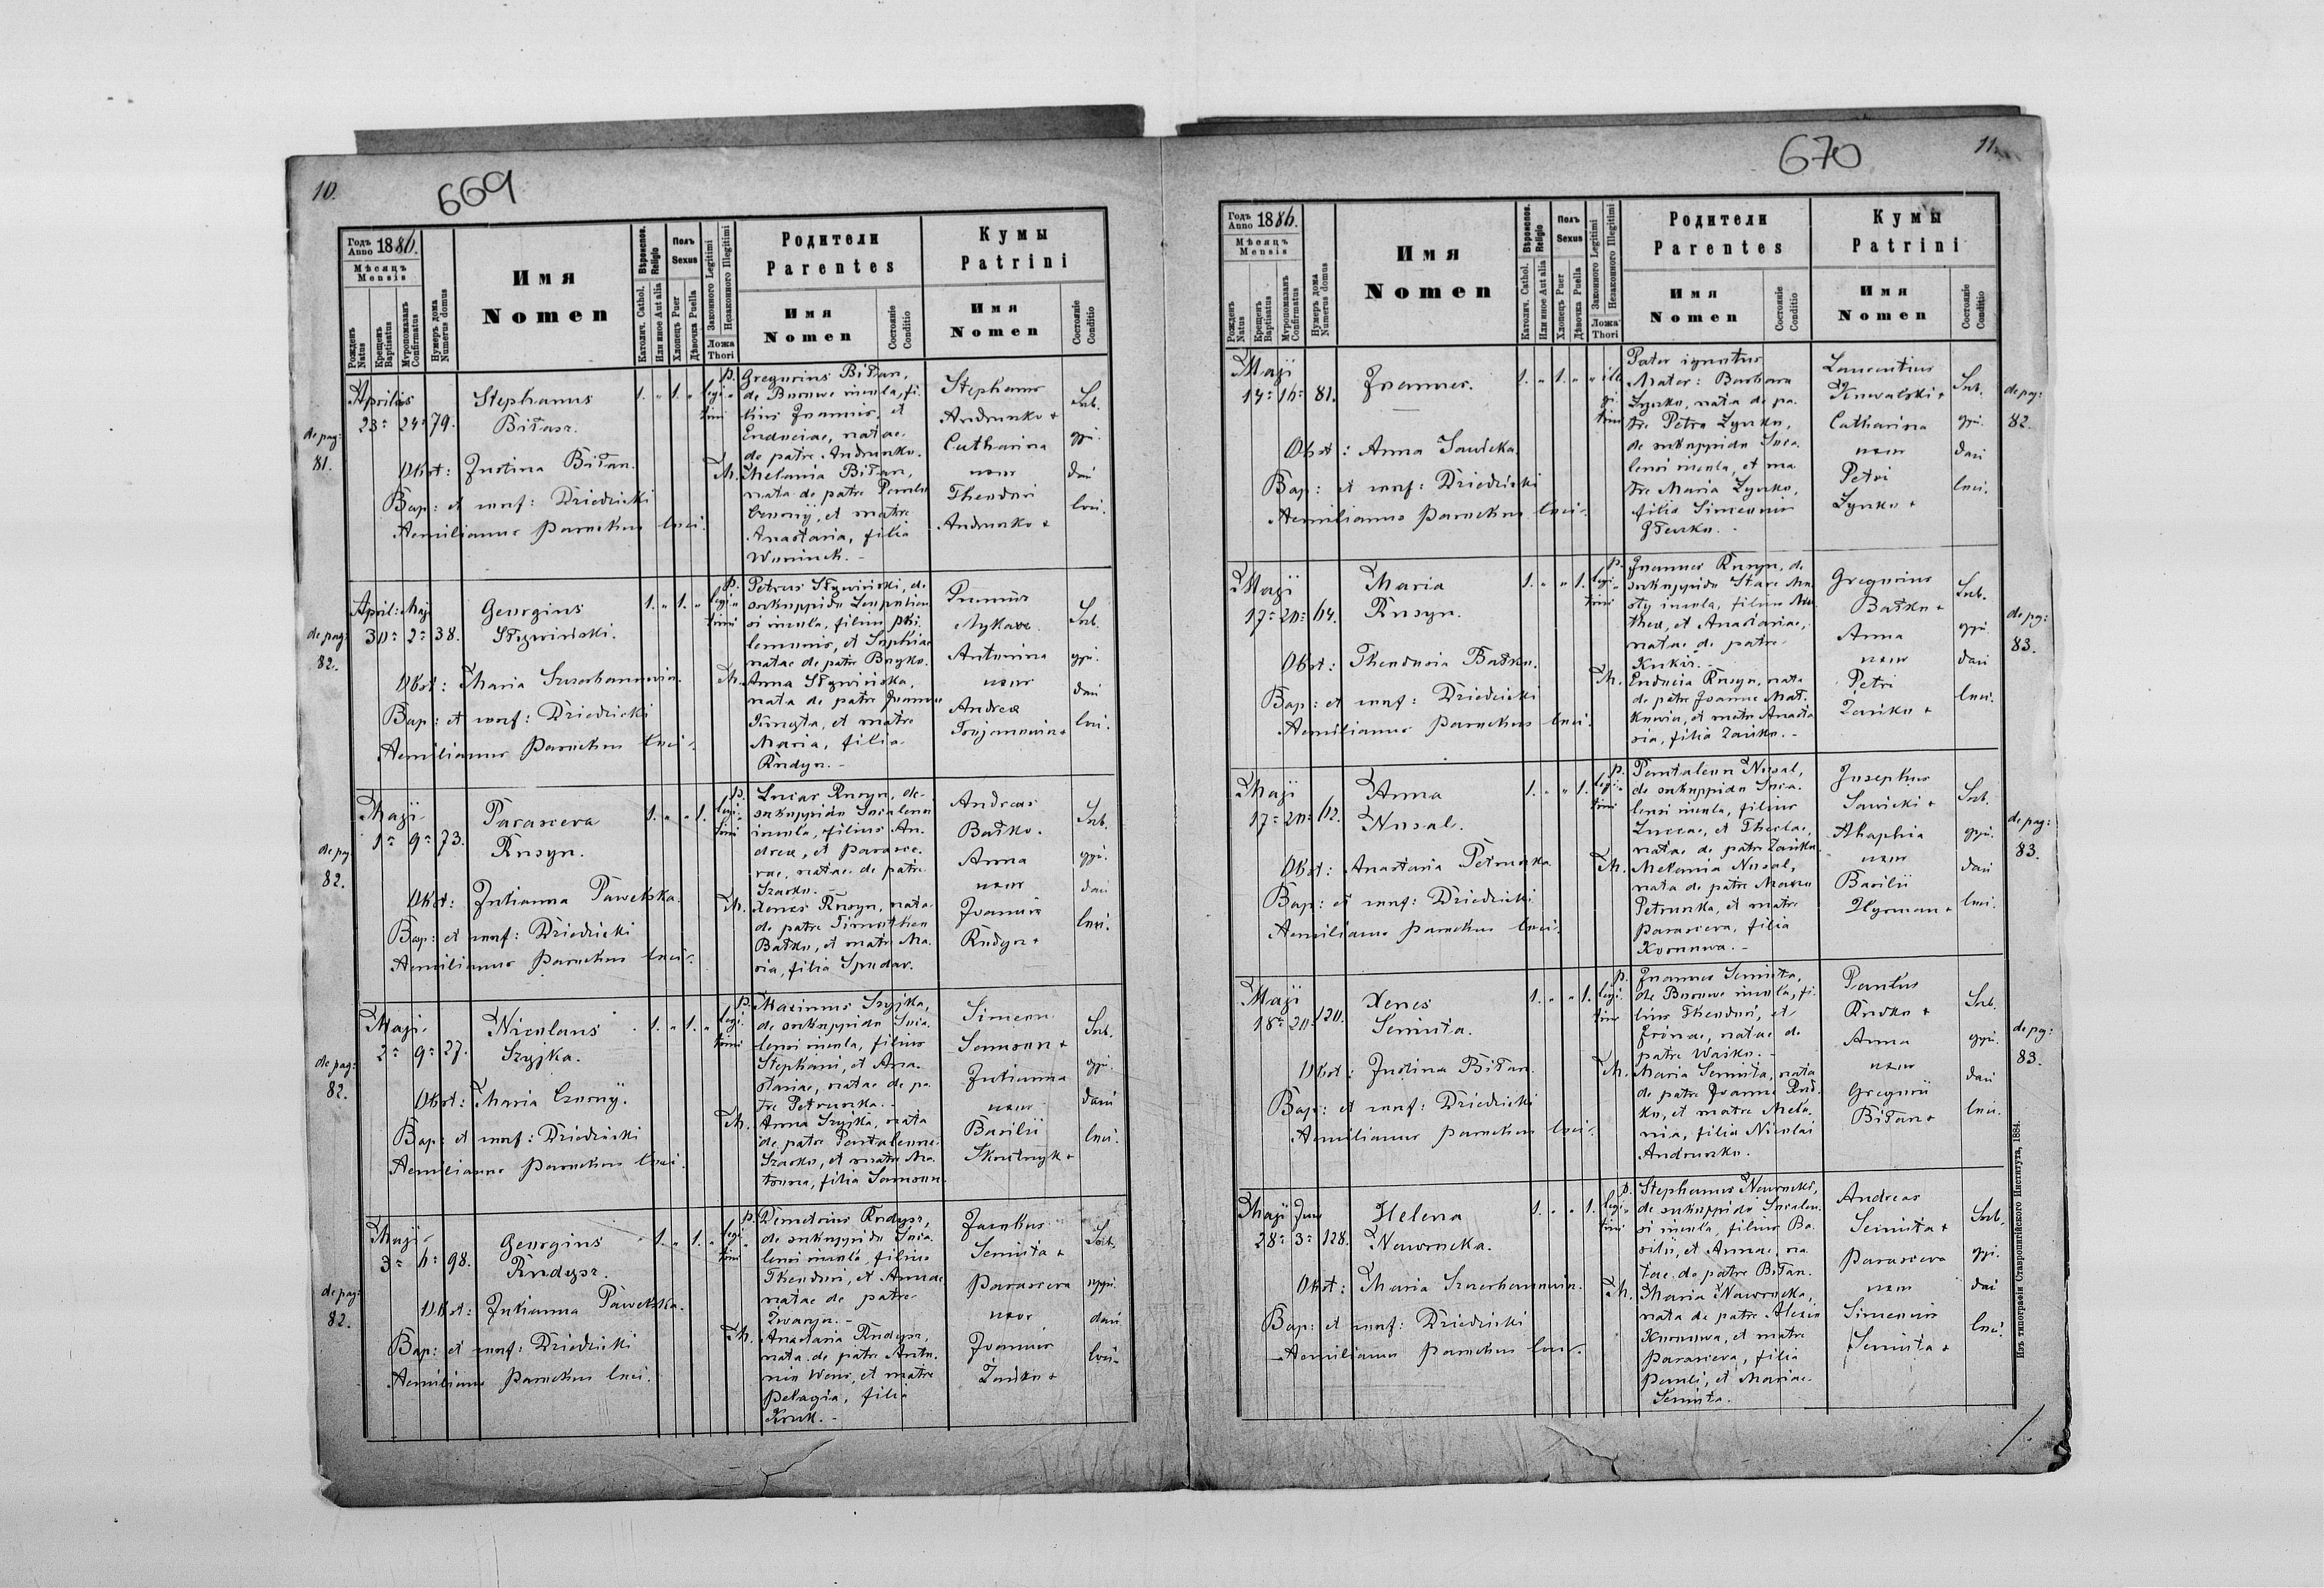 10.
669
Годъ Anno 1886.
Мѣсяцъ Mensis
Рожденъ Natus
Крещенъ Baptisatus
Мѵропомазанъ Confirmatus
Нумеръ дома Numerus domus
Имя
Nomen
Вѣроиспов. Religio
Католич. Cathol.
Или иное Aut alia
Полъ
Sexus
Хлопецъ Puer
Дѣвочка Puella
Законного Legitimi
Незаконного Illegitimi
Ложа
Thori
Родители
Parentes
Имя
Nomen
Состояніе
Conditio
Кумы
Patrini
Имя
Nomen
Состояніе
Conditio
de pag: 81.
Aprilis
23a 24a 79.
Stephanus
Biłan.
Obst: Justina Biłan.
Bap: et conf: Dziedzicki
Aemilianus parochus loci.
1. " 1. " legitimi
P. Gregorius Biłan,
de Burowe incola, fi-
lius Joannis, et
Eudociae, natae
de patre Andrunko.
M. Melania Biłan,
nata de patre Paulo
Czornij, et matre
Anastasia, filia
Stephanus
Andrunko +
Catharina
uxor
Theodori
Andrunko +
Sub.
de pag: 82.
April: Maji
30a 2a 38.
Georgius
Stywiński.
Obst: Maria Szczerbanowicz.
Bap: et conf: Dziedzicki
Aemilianus parochus loci.
1. " 1. " legitimi
P. Petrus Stywiński, de
suboppido
si incola, filius Phi-
lemonis, et Sophiae
natae de patre Boyko.
M. Anna Stywińska,
nata de patre Joanne
et matre
Maria, filia
Rudyn.
Antonina
uxor
Andreae
Trojanowicz +
Sub.
de pag: 82.
Maji
1a 9a 73.
Parasceva
Rusyn.
Obst: Julianna Pawelska.
Bap: et conf: Dziedzicki
Aemilianus parochus loci.
1. " " 1. legitimi
P. Lucas Rusyn, de
suboppido Sucalensi
incola, filius An-
dreae, et Parasce-
vae, natae de patre
Szasko.
M. Xenes Rusyn, nata
de patre Timotheo
Batko, et matre Ma-
ria, filia Spodar.
Andreas
Batko.
Anna
uxor
Joannis
Rudyn +
Sub.
de pag: 82.
Maji
2a 9a 27.
Nicolaus
Szyjka.
Obst: Maria Czornij.
Bap: et conf: Dziedzicki
Aemilianus parochus loci.
1. " 1. " legitimi
P. Maximus Szyjka,
de suboppido Suca-
lensi incola, filius
Stephani, et Ana-
stasiae, natae de pa-
tre Petrunka.
M. Anna Szyjka, nata
de patre Pantaleone
Szasko, et matre Ma-
trona, filia Samson.
Simeon
Samson +
Julianna
uxor
Basilii
Sub.
de pag: 82.
Maji
3a 6a 98.
Georgius
Rudysz.
Obst: Julianna Pawelska.
Bap: et conf: Dziedzicki
Aemilianus parochus loci.
1. " 1. " legitimi
P. Demetrius Rudysz,
de suboppido Suca-
lensi incola, filius
Theodori, et Annae
natae de patre
Zwaryn.
M. Anastasia Rudysz,
nata de patre Anto-
nio Wons, et matre
Pelagia, filia
Kruk.
Jacobus
Semuta +
Parasceva
uxor
Joannis
Zańko +
Sub.
670
11.
Годъ Anno 1886.
Мѣсяцъ Mensis
Рожденъ Natus
Крещенъ Baptisatus
Мѵропомазанъ Confirmatus
Нумеръ дома Numerus domus
Имя
Nomen
Вѣроиспов. Religio
Католич. Cathol.
Или иное Aut alia
Полъ
Sexus
Хлопецъ Puer
Дѣвочка Puella
Законного Legitimi
Незаконного Illegitimi
Ложа
Thori
Родители
Parentes
Имя
Nomen
Состояніе
Conditio
Кумы
Patrini
Имя
Nomen
Состояніе
Conditio
Maji
14a 16a 81.
Joannes.
Obst: Anna Sawicka.
Bap: et conf: Dziedzicki
Aemilianus parochus loci.
1. " 1. " " illegitimi
Pater ignotus
Mater: Barbara
Zynko, nata de pa-
tre Petro Zynko,
de suboppido Suca-
lensi incola, et ma-
tre Maria Zynko,
filia Simeonis
Laurentius
Catharina
uxor
Petri
Zynko +
Sub.
de pag: 82.
Maji
17a 20a 64.
Maria
Rusyn.
Obst: Theodosia Batko.
Bap: et conf: Dziedzicki
Aemilianus parochus loci.
1. " " 1. legitimi
P. Joannes Rusyn, de
suboppido Stare Mia-
sty incola, filius
et Anastasiae,
natae de patre
M. Eudocia Rusyn, nata
de patre Joanne
et matre Anasta-
sia, filia Zańko.
Gregorius
Batko +
Anna
uxor
Petri
Zańko +
Sub.
de pag: 83.
Maji
17a 20a 62.
Anna
Nosal.
Obst: Anastasia Petrunka
Bap: et conf: Dziedzicki
Aemilianus parochus loci.
1. " " 1. legitimi
P. Pantaleon Nosal,
de suboppido Suca-
lensi incola, filius
Luccae, et Theclae,
natae de patre Zańko.
M. Melania Nosal,
nata de patre
Petrunka, et matre
Parasceva, filia
Koronowa.
Josephus
Sawicki +
Ahaphia
uxor
Basilii
Hyrman +
Sub.
de pag: 83.
Maji
18a 20a 120.
Xenes
Semuta.
Obst: Justina Biłan.
Bap: et conf: Dziedzicki
Aemilianus parochus loci.
1. " " 1. legitimi
P. Joannes Semuta,
de Burowe incola, fi-
lius Theodori, et
Irinae, natae de
patre Waśko.
M. Maria Semuta, nata
de patre Joanne Rud-
ko, et matre Mela-
nia, filia Nicolai
Andrunko.
Paulus
Rudko +
Anna
uxor
Gregorii
Biłan +
Sub.
de pag: 83.
Maji Juni
28a 3a 128.
Helena
Nawrocka.
Obst: Maria Szczerbanowicz.
Bap: et conf: Dziedzicki
Aemilianus parochus loci.
1. " " 1. legitimi
P. Stephanus Nawrocki,
de suboppido Sucalen-
si incola, filius Ba-
silii, et Annae, na-
tae de patre Biłan.
M. Maria Nawrocka,
nata de patre Alexio
Koronowa, et matre
Parasceva, filia
Pauli, et Mariae
Semuta.
Andreas
Semuta +
Parasceva
uxor
Simeonis
Semuta +
Sub.
Изъ типографіи Ставропигійского Института, 1884.